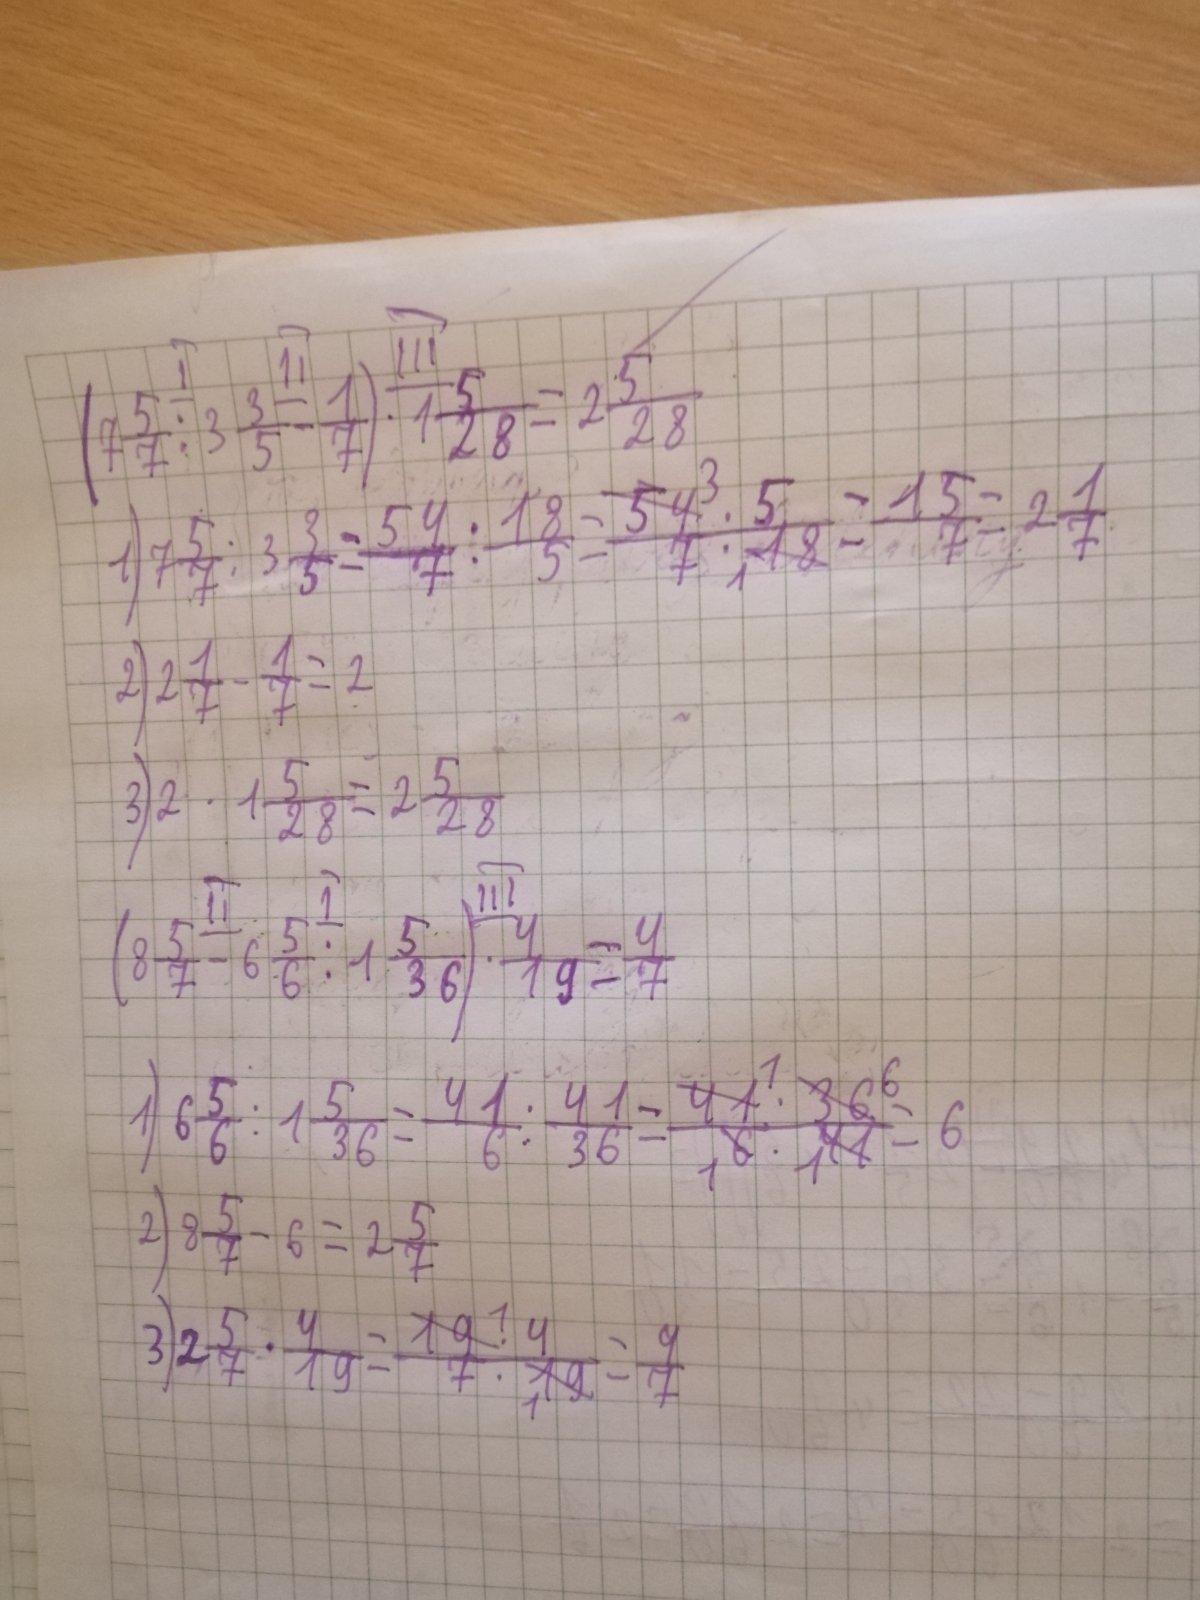 (7 5/7 : 3 3/5 - 1/7) · 1 5/28 = 2 5/28
1) 7 5/7 : 3 3/5 = 54/7 : 18/5 = 54³ · 5 / 7 · ₁18 = 15/7 = 2 1/7
2) 2 1/7 - 1/7 = 2
3) 2 · 1 5/28 = 2 5/28
(8 5/7 - 6 5/6 : 1 5/36) · 4/19 = 4/7
1) 6 5/6 : 1 5/36 = 41/6 : 41/36 = 41¹ · 36⁶ / ₁6 · ₁41 = 6
2) 8 5/7 - 6 = 2 5/7
3) 2 5/7 · 4/19 = 19¹ · 4 / 7 · ₁19 = 4/7